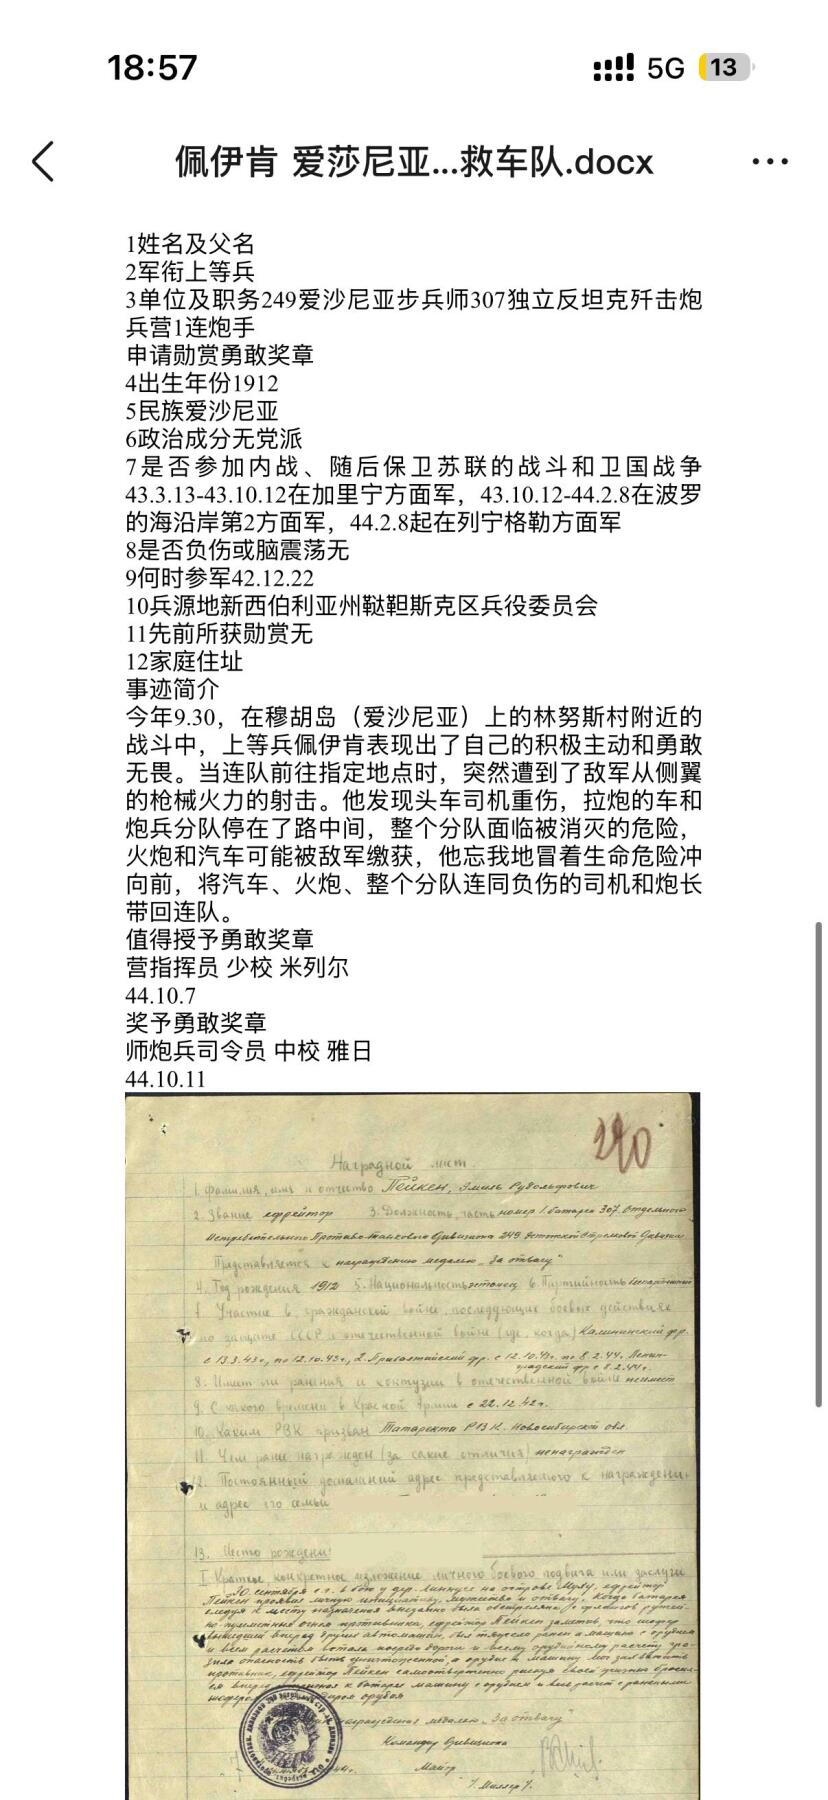 18:57
5G 13
佩伊肯 爱莎尼亚...救车队.docx
1姓名及父名
2军衔上等兵
3单位及职务249爱沙尼亚步兵师307独立反坦克歼击炮
兵营1连炮手
申请勋赏勇敢奖章
4出生年份1912
5民族爱沙尼亚
6政治成分无党派
7是否参加内战、随后保卫苏联的战斗和卫国战争
43.3.13-43.10.12在加里宁方面军，43.10.12-44.2.8在波罗
的海沿岸第2方面军，44.2.8起在列宁格勒方面军
8是否负伤或脑震荡无
9何时参军42.12.22
10兵源地新西伯利亚州鞑靼斯克区兵役委员会
11先前所获勋赏无
12家庭住址
事迹简介
今年9.30，在穆胡岛（爱沙尼亚）上的林努斯村附近的
战斗中，上等兵佩伊肯表现出了自己的积极主动和勇敢
无畏。当连队前往指定地点时，突然遭到了敌军从侧翼
的枪械火力的射击。他发现头车司机重伤，拉炮的车和
炮兵分队停在了路中间，整个分队面临被消灭的危险，
火炮和汽车可能被敌军缴获，他忘我地冒着生命危险冲
向前，将汽车、火炮、整个分队连同负伤的司机和炮长
带回连队。
值得授予勇敢奖章
营指挥员 少校 米列尔
44.10.7
奖予勇敢奖章
师炮兵司令员 中校 雅日
44.10.11
Наградной лист
1. Фамилия, имя и отчество Пейкен, Эмиль Рудольфович
2. Звание ефрейтор 3. Должность, часть номер 1 батареи 307 Отдельного
Истребительного Противо-танкового Дивизиона 249 Эстонской Стрелковой Дивизии
Представляется к награждению медалью „За отвагу"
4. Год рождения 1912 5. Национальность эстонец 6. Партийность беспартийный
7. Участие в гражданской войне, последующих боевых действиях
по защите СССР и отечественной войне (где, когда) Калининский фр.
с 13.3.43г. по 12.10.43г., 2. Прибалтийский фр. с 12.10.43г. по 8.2.44. Ленин-
градский фр с 8.2.44г.
8. Имеет ли ранения и контузии в отечественной войне неимеет
9. С какого времени в Красной Армии с 22.12.42г.
10. Каким РВК призван Татарским РВК. Новосибирской обл.
11. Чем ранее награжден (за какие отличия) ненагражден
12. Постоянный домашний адрес представляемого к награждени
и адрес его семьи
13. Место рождени
I Краткое, конкретное изложение личного боевого подвига или заслуги
30 сентября с.г. в бою у дер. Линнусе на острове Муху, ефрейтор
Пейкен проявил личную инициативу, мужество и отвагу. Когда батарея
следуя к месту назначения внезапно была обстреляна с флангов ружей-
но-пулеметным огнем противника, ефрейтор Пейкен заметив, что шофер
вышедшей вперед других автомашин, был тяжело ранен а машина с орудием
и всем расчетом встала посреди дороги и всему орудийному расчету гро-
зила опасность быть уничтоженной, а орудие и машину мог захватить
противник, ефрейтор Пейкен самоотверженно рискуя своей жизнью бросил-
ся вперед к батарее машину с орудием и весь расчет с ранеными
шофером орудия
награждения медалью „За отвагу"
Командир Дивизиона
Майор
/. Миллер /.